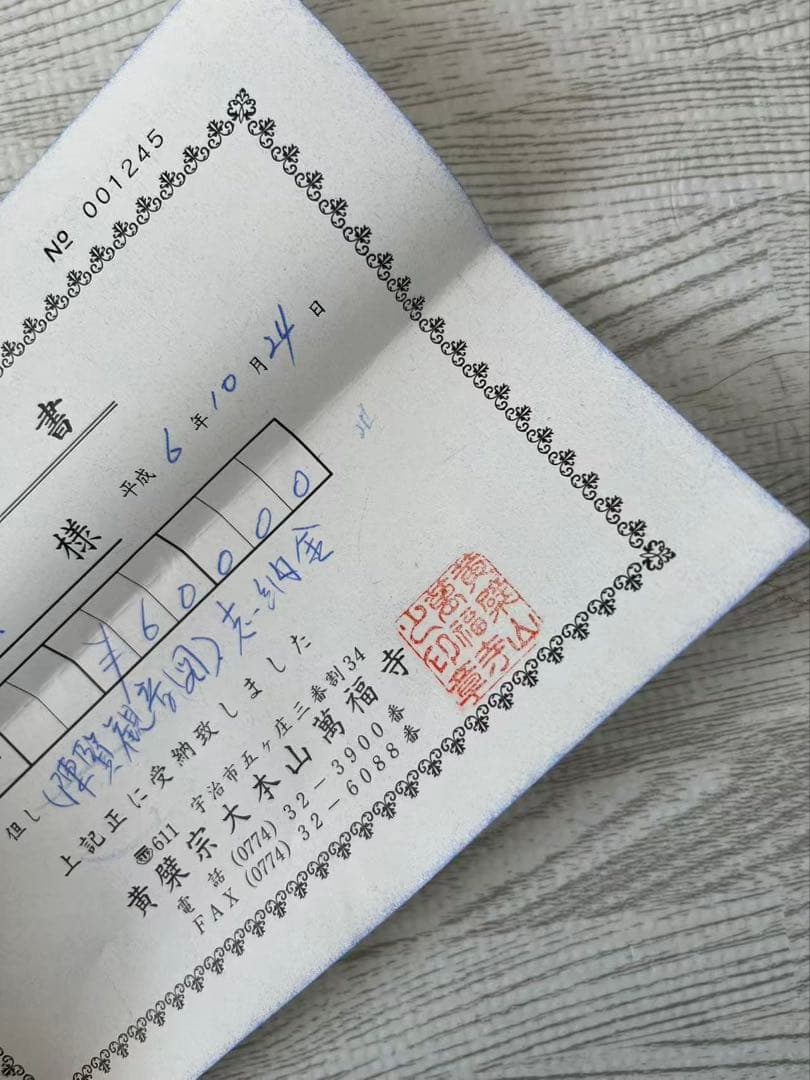 № 001245
書
平成 6 年 10 月 24 日
様
¥60000
但し (陳賢観音図) 志納金
上記正に受納致しました
〒611 宇治市五ヶ庄三番割34
黄檗宗大本山萬福寺
電話 (0774) 32-3900番
FAX (0774) 32-6088番
黄檗山
萬福寺
之印章